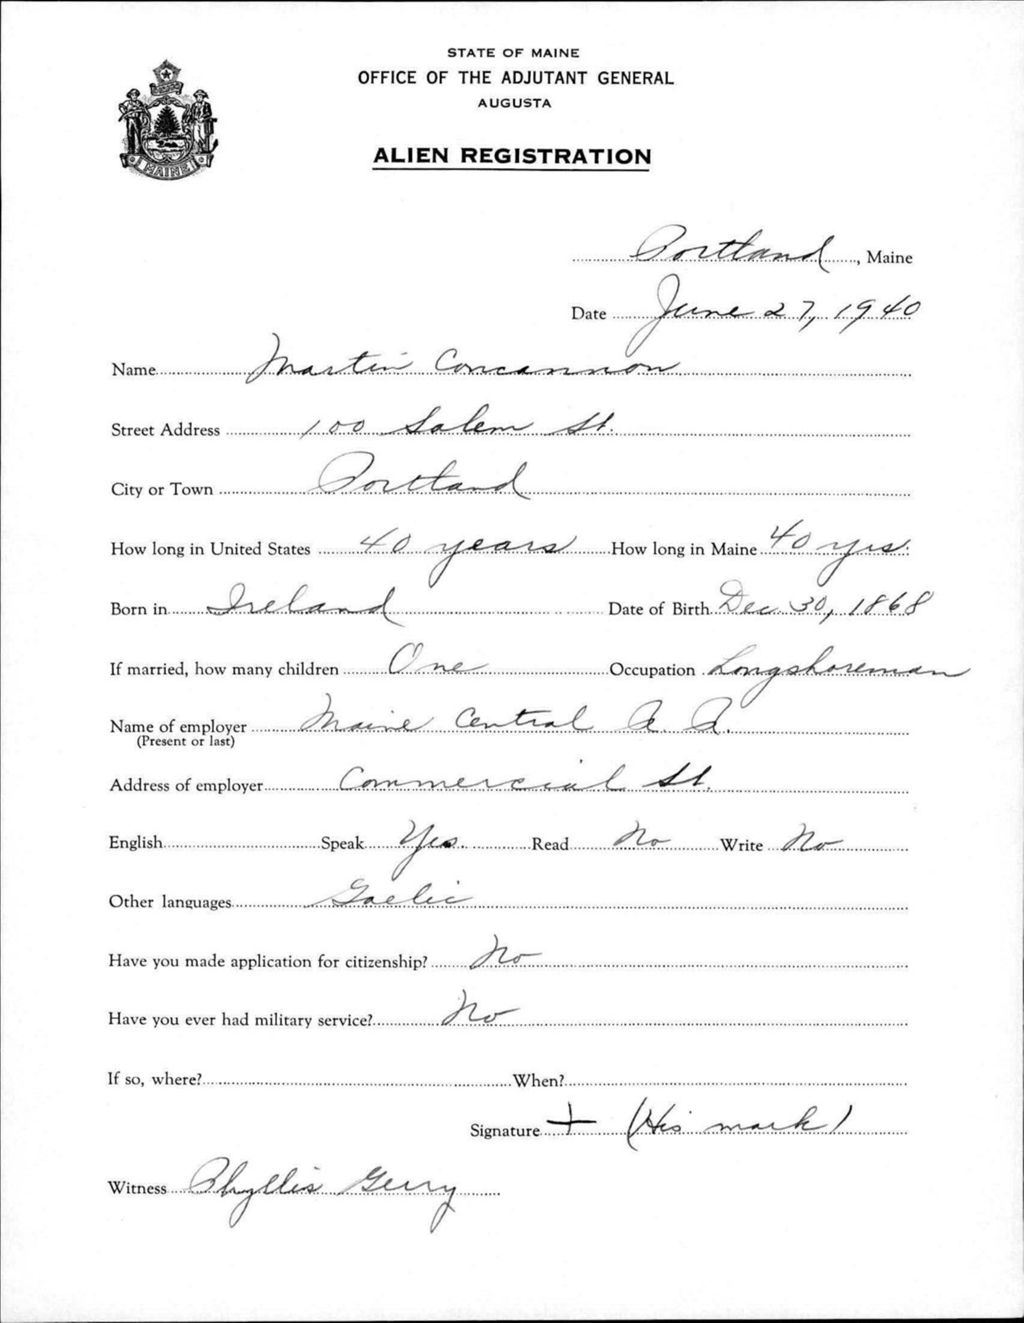 STATE OF MAINE
OFFICE OF THE ADJUTANT GENERAL
AUGUSTA
ALIEN REGISTRATION
MAINE
Portland, Maine
Date June 27, 1940
Name Martin Concannon
Street Address 100 Salem St.
City or Town Portland
How long in United States 40 years How long in Maine 40 yrs.
Born in Ireland Date of Birth Dec 30, 1868
If married, how many children One Occupation Longshoreman
Name of employer Maine Central R. R.
(Present or last)
Address of employer Commercial St.
English Speak Yes. Read No Write No
Other languages Gaelic
Have you made application for citizenship? No
Have you ever had military service? No
If so, where? When?
Signature + (His mark)
Witness Phyllis Gerry